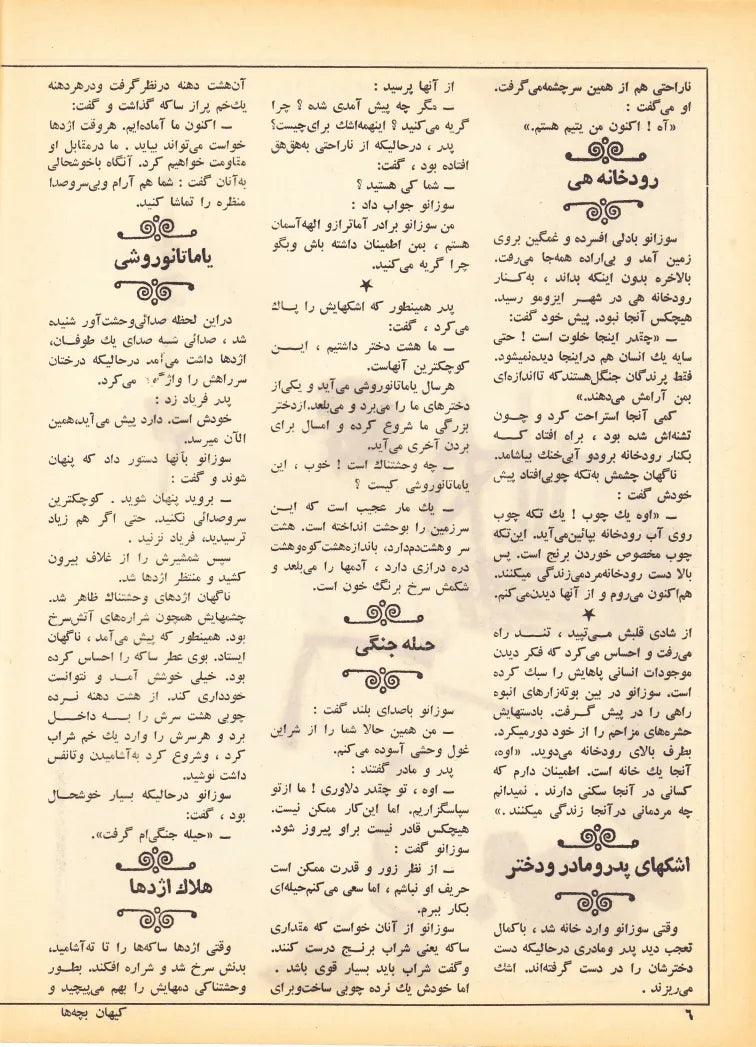 ناراحتی هم از همین سرچشمه‌می‌گرفت.
او می‌گفت :
«آه ! اکنون من یتیم هستم.»
رودخانه هی
سوزانو بادلی افسرده و غمگین بروی
زمین آمد و بی‌اراده همه‌جا می‌رفت.
بالاخره بدون اینکه بداند ، به‌کنار
رودخانه هی در شهر ایزومو رسید.
هیچکس آنجا نبود. پیش خود گفت:
ـ «چقدر اینجا خلوت است ! حتی
سایه یك انسان هم دراینجا دیده‌نمیشود.
فقط پرندگان جنگل‌هستندکه تااندازه‌ای
بمن آرامش می‌دهند.»
کمی آنجا استراحت کرد و چون
تشنه‌اش شده بود ، براه افتاد که
بکنار رودخانه برودو آبی‌خنك بیاشامد.
ناگهان چشمش به‌تکه چوبی‌افتاد پیش
خودش گفت :
ـ «اوه یك چوب ! یك تکه چوب
روی آب رودخانه بپائین‌می‌آید. این‌تکه
چوب مخصوص خوردن برنج است. پس
بالا دست رودخانه‌مردمی‌زندگی میکنند.
هم‌اکنون می‌روم و از آنها دیدن‌می‌کنم.
★
از شادی قلبش می‌تپید ، تند راه
می‌رفت و احساس می‌کرد که فکر دیدن
موجودات انسانی پاهایش را سبك کرده
است. سوزانو در بین بوته‌زارهای انبوه
راهی را در پیش گرفت. بادستهایش
حشره‌های مزاحم را از خود دورمیکرد.
بطرف بالای رودخانه می‌دوید. «اوه،
آنجا یك خانه است. اطمینان دارم که
کسانی در آنجا سکنی دارند . نمیدانم
چه مردمانی درآنجا زندگی میکنند .»
اشکهای پدرو مادر و دختر
وقتی سوزانو وارد خانه شد ، باکمال
تعجب دید پدر ومادری درحالیکه دست
دخترشان را در دست گرفته‌اند. اشك
می‌ریزند .
از آنها پرسید :
ـ مگر چه پیش آمدی شده ؟ چرا
گریه می‌کنید ؟ اینهمه‌اشك برای‌چیست؟
پدر ، درحالیکه از ناراحتی به‌هق‌هق
افتاده بود ، گفت:
ـ شما کی هستید ؟
سوزانو جواب داد :
من سوزانو برادر آماترازو الهه‌آسمان
هستم ، بمن اطمینان داشته باش وبگو
چرا گریه می‌کنید.
★
پدر همینطور که اشکهایش را پاك
می‌کرد ، گفت:
ـ ما هشت دختر داشتیم ، این
کوچکترین آنهاست.
هرسال یاماتانوروشی می‌آید و یکی‌از
دخترهای ما را می‌برد و می‌بلعد.ازدختر
بزرگی ما شروع کرده و امسال برای
بردن آخری می‌آید.
ـ چه وحشتناك است ! خوب ، این
یاماتانوروشی کیست ؟
ـ یك مار عجیب است که این
سرزمین را بوحشت انداخته است. هشت
سر وهشت‌دم‌دارد، باندازه‌هشت‌کوه‌وهشت
دره درازی دارد ، آدمها را می‌بلعد و
شکمش سرخ برنگ خون است.
حیله جنگی
سوزانو باصدای بلند گفت :
ـ من همین حالا شما را از شراین
غول وحشی آسوده می‌کنم.
پدر و مادر گفتند :
ـ اوه ، تو چقدر دلاوری ! ما ازتو
سپاسگزاریم. اما این‌کار ممکن نیست.
هیچکس قادر نیست براو پیروز شود.
سوزانو گفت :
ـ از نظر زور و قدرت ممکن است
حریف او نباشم ، اما سعی می‌کنم‌حیله‌ای
بکار ببرم.
سوزانو از آنان خواست که مقداری
ساکه یعنی شراب برنج درست کنند.
وگفت شراب باید بسیار قوی باشد .
اما خودش یك نرده چوبی ساخت‌وبرای
آن‌هشت دهنه درنظرگرفت ودرهردهنه
یك‌خم پراز ساکه گذاشت و گفت:
ـ اکنون ما آماده‌ایم. هروقت اژدها
خواست می‌تواند بیاید . ما درمقابل او
مقاومت خواهیم کرد. آنگاه باخوشحالی
به‌آنان گفت : شما هم آرام وبی‌سروصدا
منظره را تماشا کنید.
یاماتانوروشی
دراین لحظه صدائی‌وحشت‌آور شنیده
شد ، صدائی شبیه صدای یك طوفان،
اژدها داشت می‌آمد درحالیکه درختان
سرراهش را می‌کرد.
پدر فریاد زد :
خودش است. دارد پیش می‌آید،همین
الآن میرسد.
سوزانو بآنها دستور داد که پنهان
شوند و گفت :
ـ بروید پنهان شوید . کوچکترین
سروصدائی نکنید. حتی اگر هم زیاد
ترسیدید، فریاد نزنید .
سپس شمشیرش را از غلاف بیرون
کشید و منتظر اژدها شد.
ناگهان اژدهای وحشتناك ظاهر شد.
چشمهایش همچون شراره‌های آتش‌سرخ
بود. همینطور که پیش می‌آمد ، ناگهان
ایستاد. بوی عطر ساکه را احساس کرده
بود. خیلی خوشش آمد و نتوانست
خودداری کند. از هشت دهنه نرده
چوبی هشت سرش را به داخل
برد و هرسرش را وارد یك خم شراب
کرد ، وشروع کرد به‌آشامیدن وتانفس
داشت نوشید.
سوزانو درحالیکه بسیار خوشحال
بود ، گفت:
ـ «حیله جنگی‌ام گرفت».
هلاك اژدها
وقتی اژدها ساکه‌ها را تا ته‌آشامید،
بدنش سرخ شد و شراره افکند. بطور
وحشتناکی دمهایش را بهم می‌پیچید و
٦
کیهان بچه‌ها